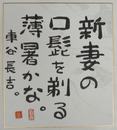 新妻の
口髭を剃る
薄暑かな。
車谷長吉。